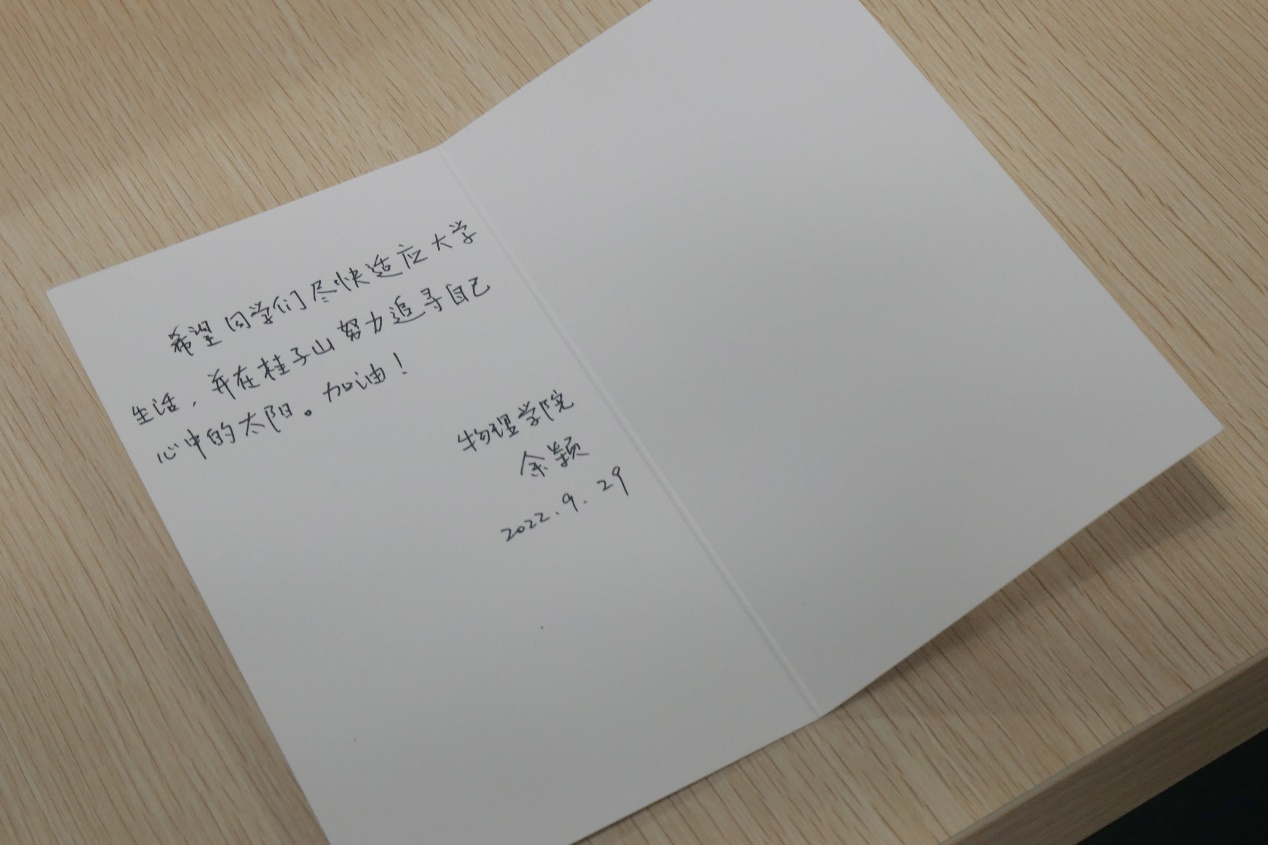 希望同学们尽快适应大学
生活，并在桂子山努力追寻自己
心中的太阳。加油！
物理学院
余颖
2022.9.29